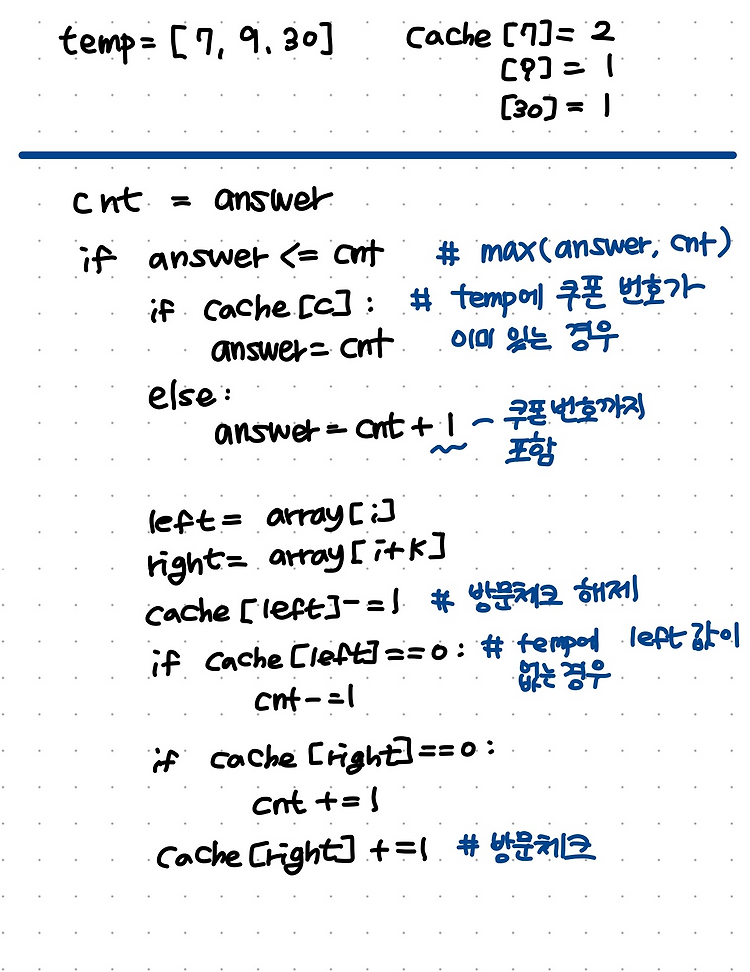 temp = [7, 9, 30] cache [7] = 2
[9] = 1
[30] = 1
cnt = answer
if answer <= cnt # max(answer, cnt)
if cache [c] : # temp에 쿠폰 번호가
answer = cnt 이미 있는 경우
else :
answer = cnt + 1 ~ 쿠폰번호까지
포함
left = array [i]
right = array [i+k]
cache [left] -= 1 # 방문체크 해제
if cache [left] == 0 : # temp에 left 값이
없는 경우
cnt -= 1
if cache [right] == 0 :
cnt += 1
cache [right] += 1 # 방문체크